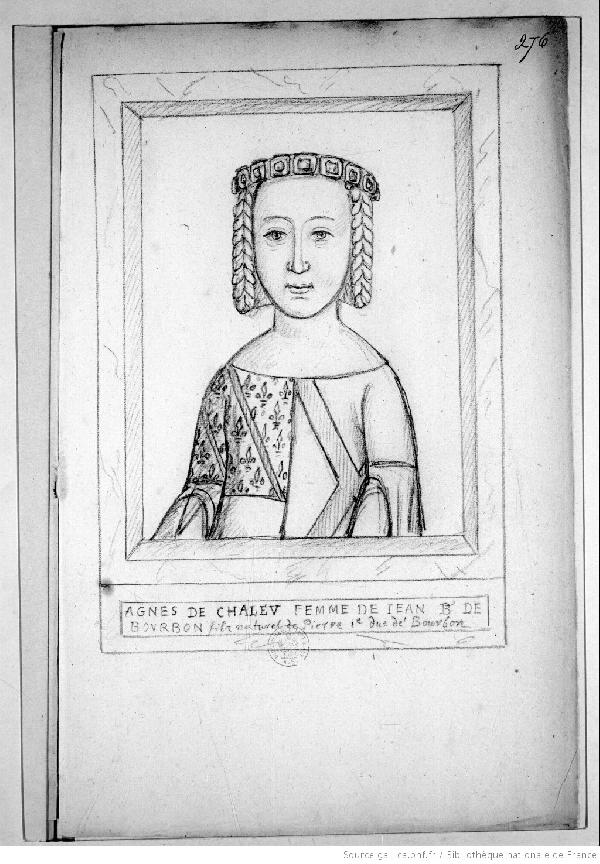 276
AGNES DE CHALEV FEMME DE IEAN Bd DE
BOVRBON filz naturel de Pierre 1e duc de Bourbon
Source gallica.bnf.fr / Bibliothèque nationale de France